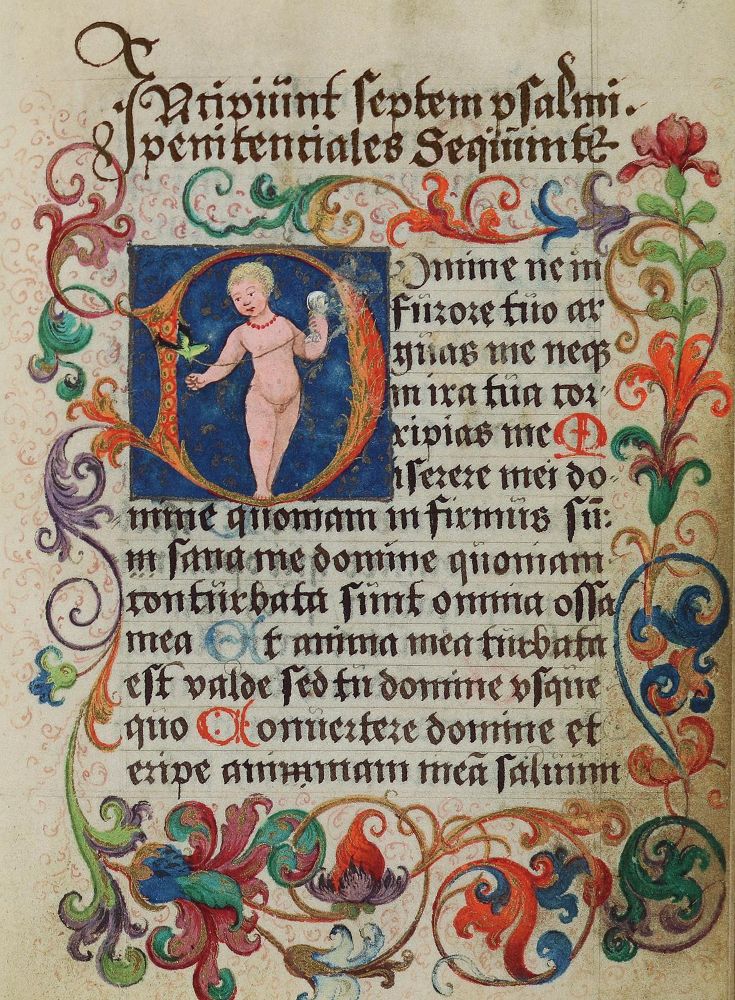 INcipiunt septem psalmi.
penitentiales Sequuntꝛ
Domine ne in
furore tuo ar
guas me neqꝫ
in ira tua cor
ripias me M
iserere mei do
mine quoniam in firmus su:
m sana me domine quoniam
conturbata sunt omnia ossa
mea Et anima mea turbata
est valde sed tu domine vsque
quo Conuertere domine et
eripe animmam meā saluum